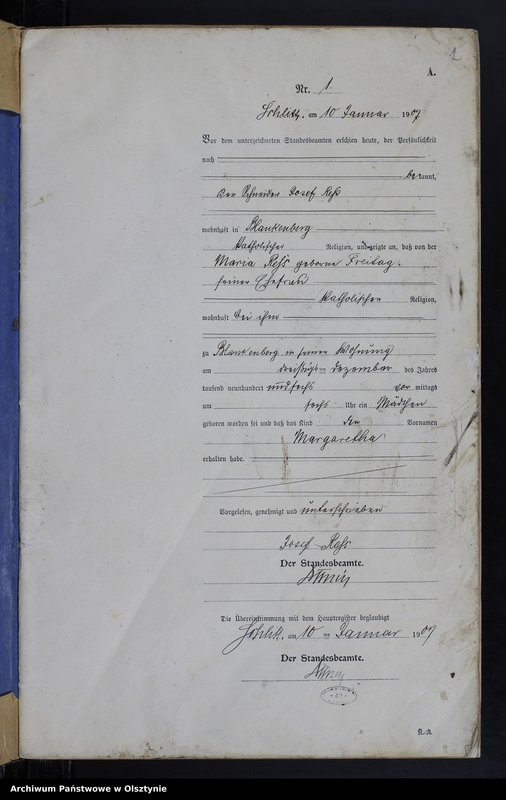 2
A.
Nr. 1.
Schlitt, am 10 Januar 1907
Vor dem unterzeichneten Standesbeamten erschien heute, der Persönlichkeit
nach
bekannt,
der Schneider Josef Rehs
wohnhaft in Blankenberg
katholischer Religion, und zeigte an, daß von der
Maria Rehs geborne Freitag,
seiner Ehefrau
katholischer Religion,
wohnhaft bei ihm
zu Blankenberg in seiner Wohnung
am dreißigsten Dezember des Jahres
tausend neunhundert und sechs vor mittags
um sechs Uhr ein Mädchen
geboren worden sei und daß das Kind den Vornamen
Margaretha
erhalten habe.
Vorgelesen, genehmigt und unterschrieben
Josef Rehs
Der Standesbeamte.
Die Übereinstimmung mit dem Hauptregister beglaubigt
Schlitt, am 10 ten Januar 1907
Der Standesbeamte.
Archiwum Państwowe w Olsztynie